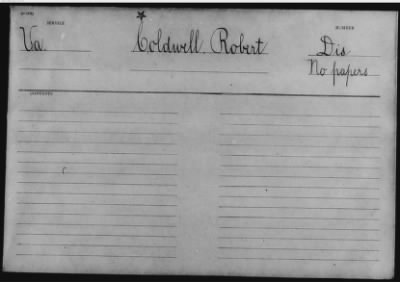 SERVICE
NUMBER
Va. Coldwell, Robert Dis.
No papers